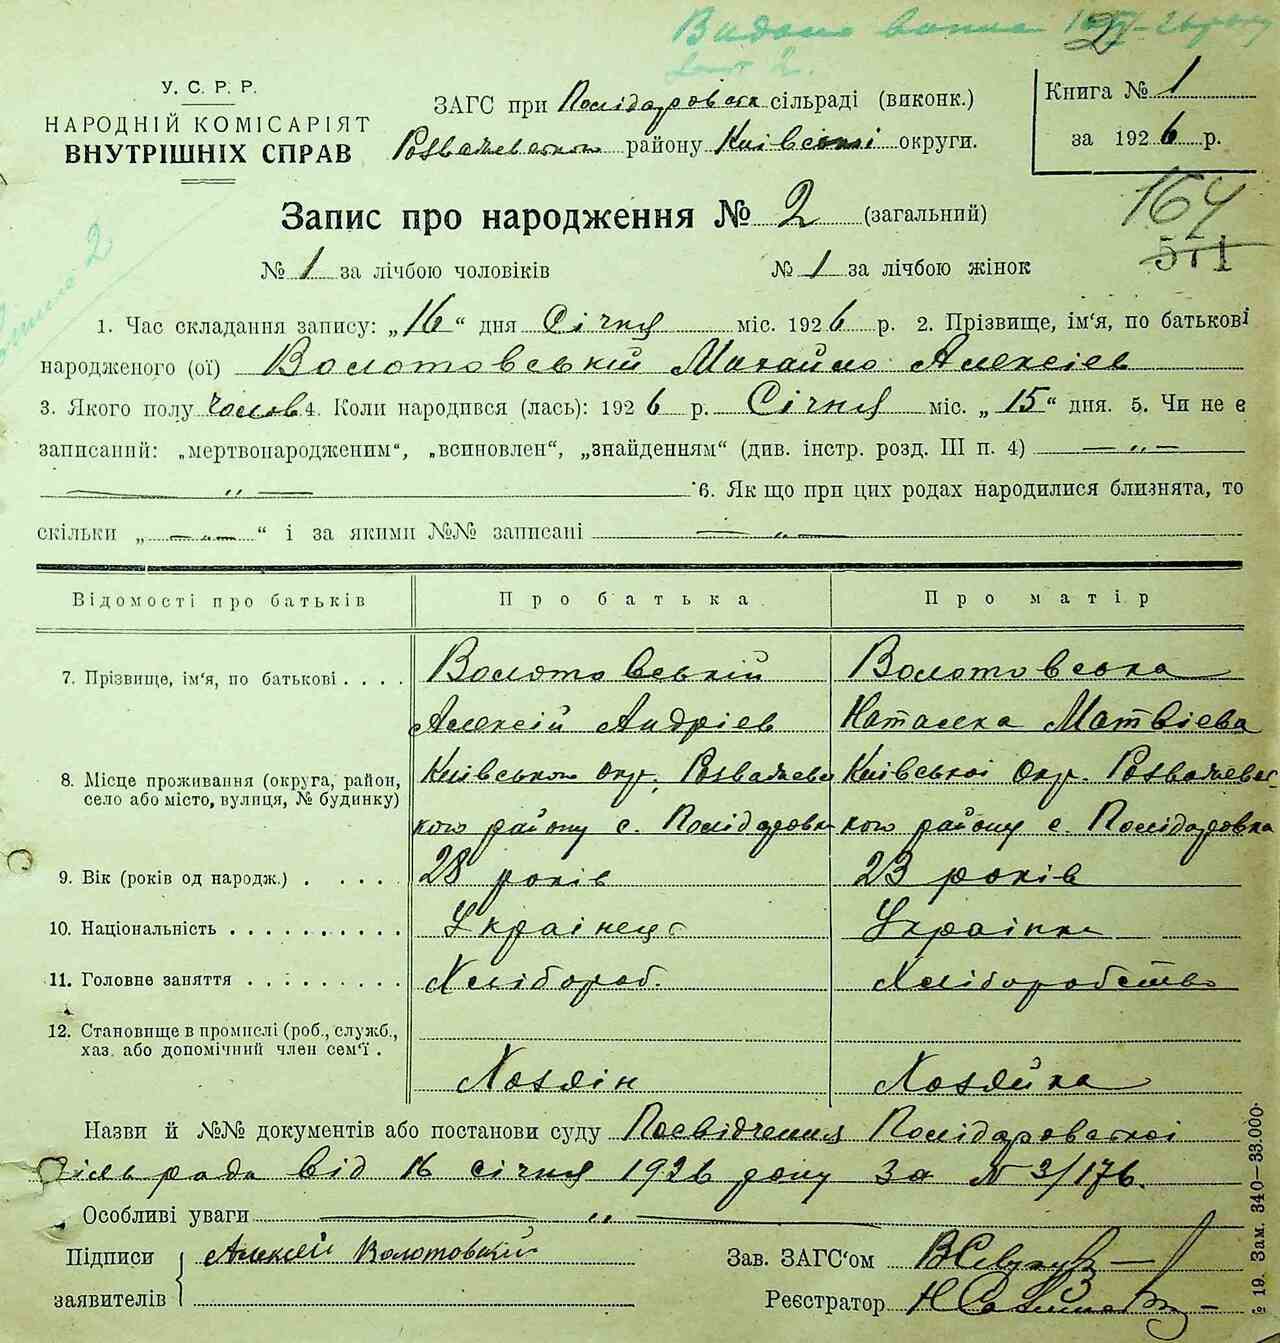 Видано виписа
2
У. С. Р. Р.
НАРОДНІЙ КОМІСАРІЯТ
ВНУТРІШНІХ СПРАВ
ЗАГС при сільраді (виконк.)
району Київської округи.
Книга № 1
за 1926 р.
Запис про народження № 2 (загальний)
164
571
№ 1 за лічбою чоловіків № 1 за лічбою жінок
1. Час складання запису: „16“ дня Січня міс. 1926 р. 2. Прізвище, ім‘я, по батькові
народженого (ої) Волотовській Михайло Алексієв
3. Якого полу чолов 4. Коли народився (лась): 1926 р. Січня міс. „15“ дня. 5. Чи не є
записаний: „мертвонародженим“, „всиновлен“, „знайденням“ (див. інстр. розд. III п. 4) — „ —
— „ — 6. Як що при цих родах народилися близнята, то
скільки „— „ —“ і за якими №№ записані — „ —
Відомості про батьків Про батька Про матір
7. Прізвище, ім‘я, по батькові Волотовській Волотовська
Алексій Андрієв Наталка Матвієва
8. Місце проживання (округа, район,
село або місто, вулиця, № будинку)
Київською окр. Розважевс Київської Окр. Розважевсь
кого району с. Полідаровка кого району с. Полідаровка
9. Вік (років од народж.) 28 років 23 років
10. Національність Українець Українка
11. Головне заняття Хлібороб. Хліборобство
12. Становище в промислі (роб., служб.,
хаз. або допомічний член сем‘ї.
Хозяїн Хозяйка
Назви й №№ документів або постанови суду Посвідчення Полідаровської
сільради від 16 січня 1926 року за № 3/176.
Особливі уваги — „ —
Підписи
заявителів
Алексей Волотовский
Зав. ЗАГС‘ом
Реєстратор
№ 19. Зам. 340—33.000.